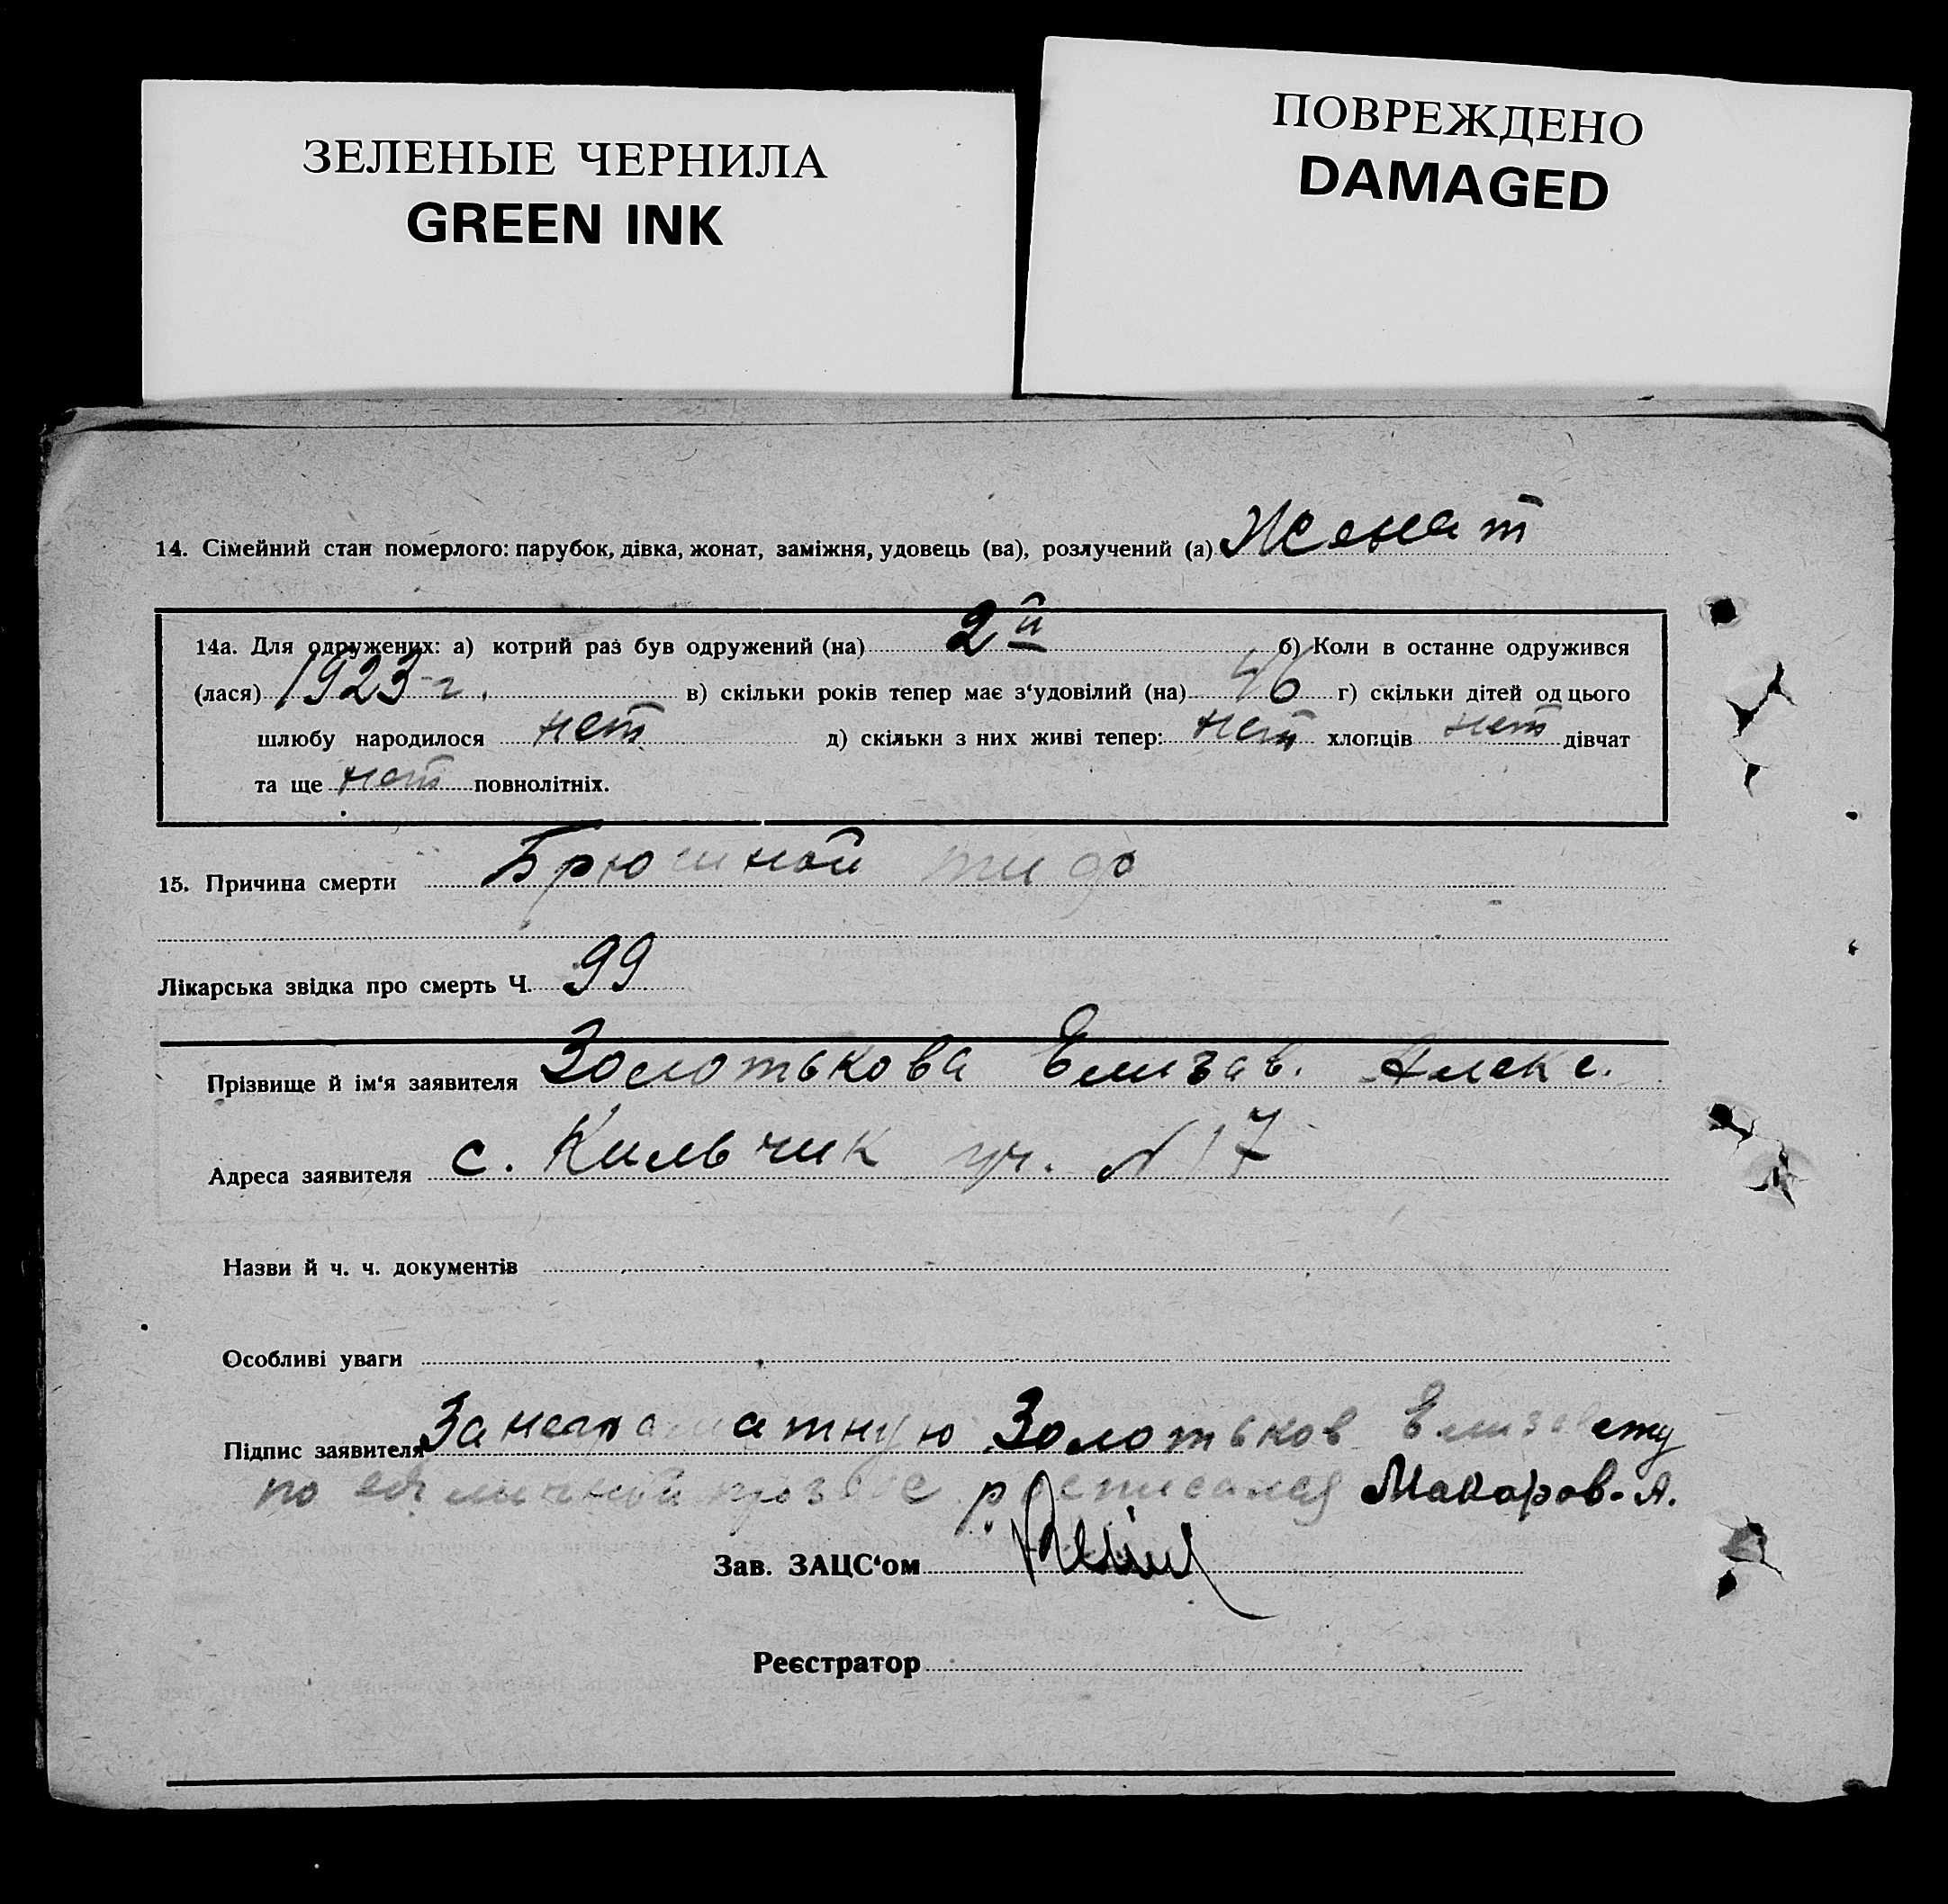 ЗЕЛЕНЫЕ ЧЕРНИЛА
GREEN INK
ПОВРЕЖДЕНО
DAMAGED
14. Сімейний стан померлого: парубок, дівка, жонат, заміжня, удовець (ва), розлучений (а) Женат
14а. Для одружених: а) котрий раз був одружений (на) 2й б) Коли в останнє одружився
(лася) 1923 г. в) скільки років тепер має з‘удовілий (на) 46 г) скільки дітей од цього
шлюбу народилося нет д) скільки з них живі тепер: нет хлопців нет дівчат
та ще нет повнолітніх.
15. Причина смерти Брюшной тиф
Лікарська звідка про смерть Ч. 99
Прізвище й ім‘я заявителя Золотькова Елизав. Алекс.
Адреса заявителя с. Кильчик уч. N 17
Назви й ч. ч. документів
Особливі уваги
Підпис заявителя За неграматную Золотьков Елизавету
по ея личной прозбе росписался Макаров. А.
Зав. ЗАЦС‘ом
Реєстратор